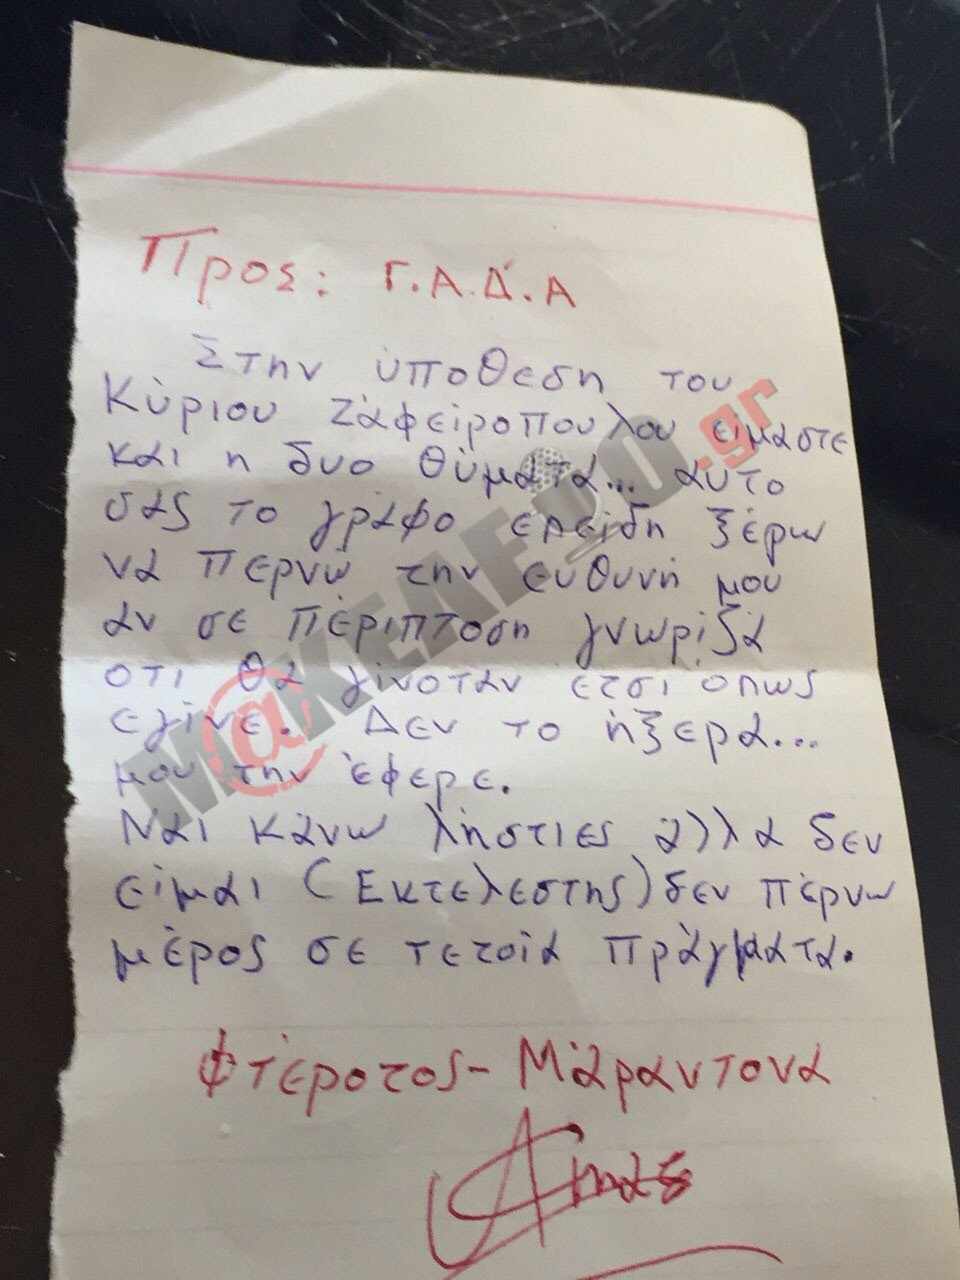 Προς: Γ.Α.Δ.Α
Στην ύποθεση του
Κύριου Ζάφείροπουλου είμαστε
και η δυο θύματα... αυτο
σας το γράφο επείδη ξέρω
να περνώ την ευθυνή μου
αν σε πέριπτοση γνωρίζα
οτι θα γίνοταν ετσι όπως
εγίνε. Δεν το ήξερα...
μου την έφερε.
Ναι κάνω λήστιες άλλα δεν
είμαι (Εκτελεστης) δεν πέρνω
μέρος σε τετοία πράγματα.
Φτέροτος - Μάραντονα
M@ΚΕΛΕΙΟ.gr